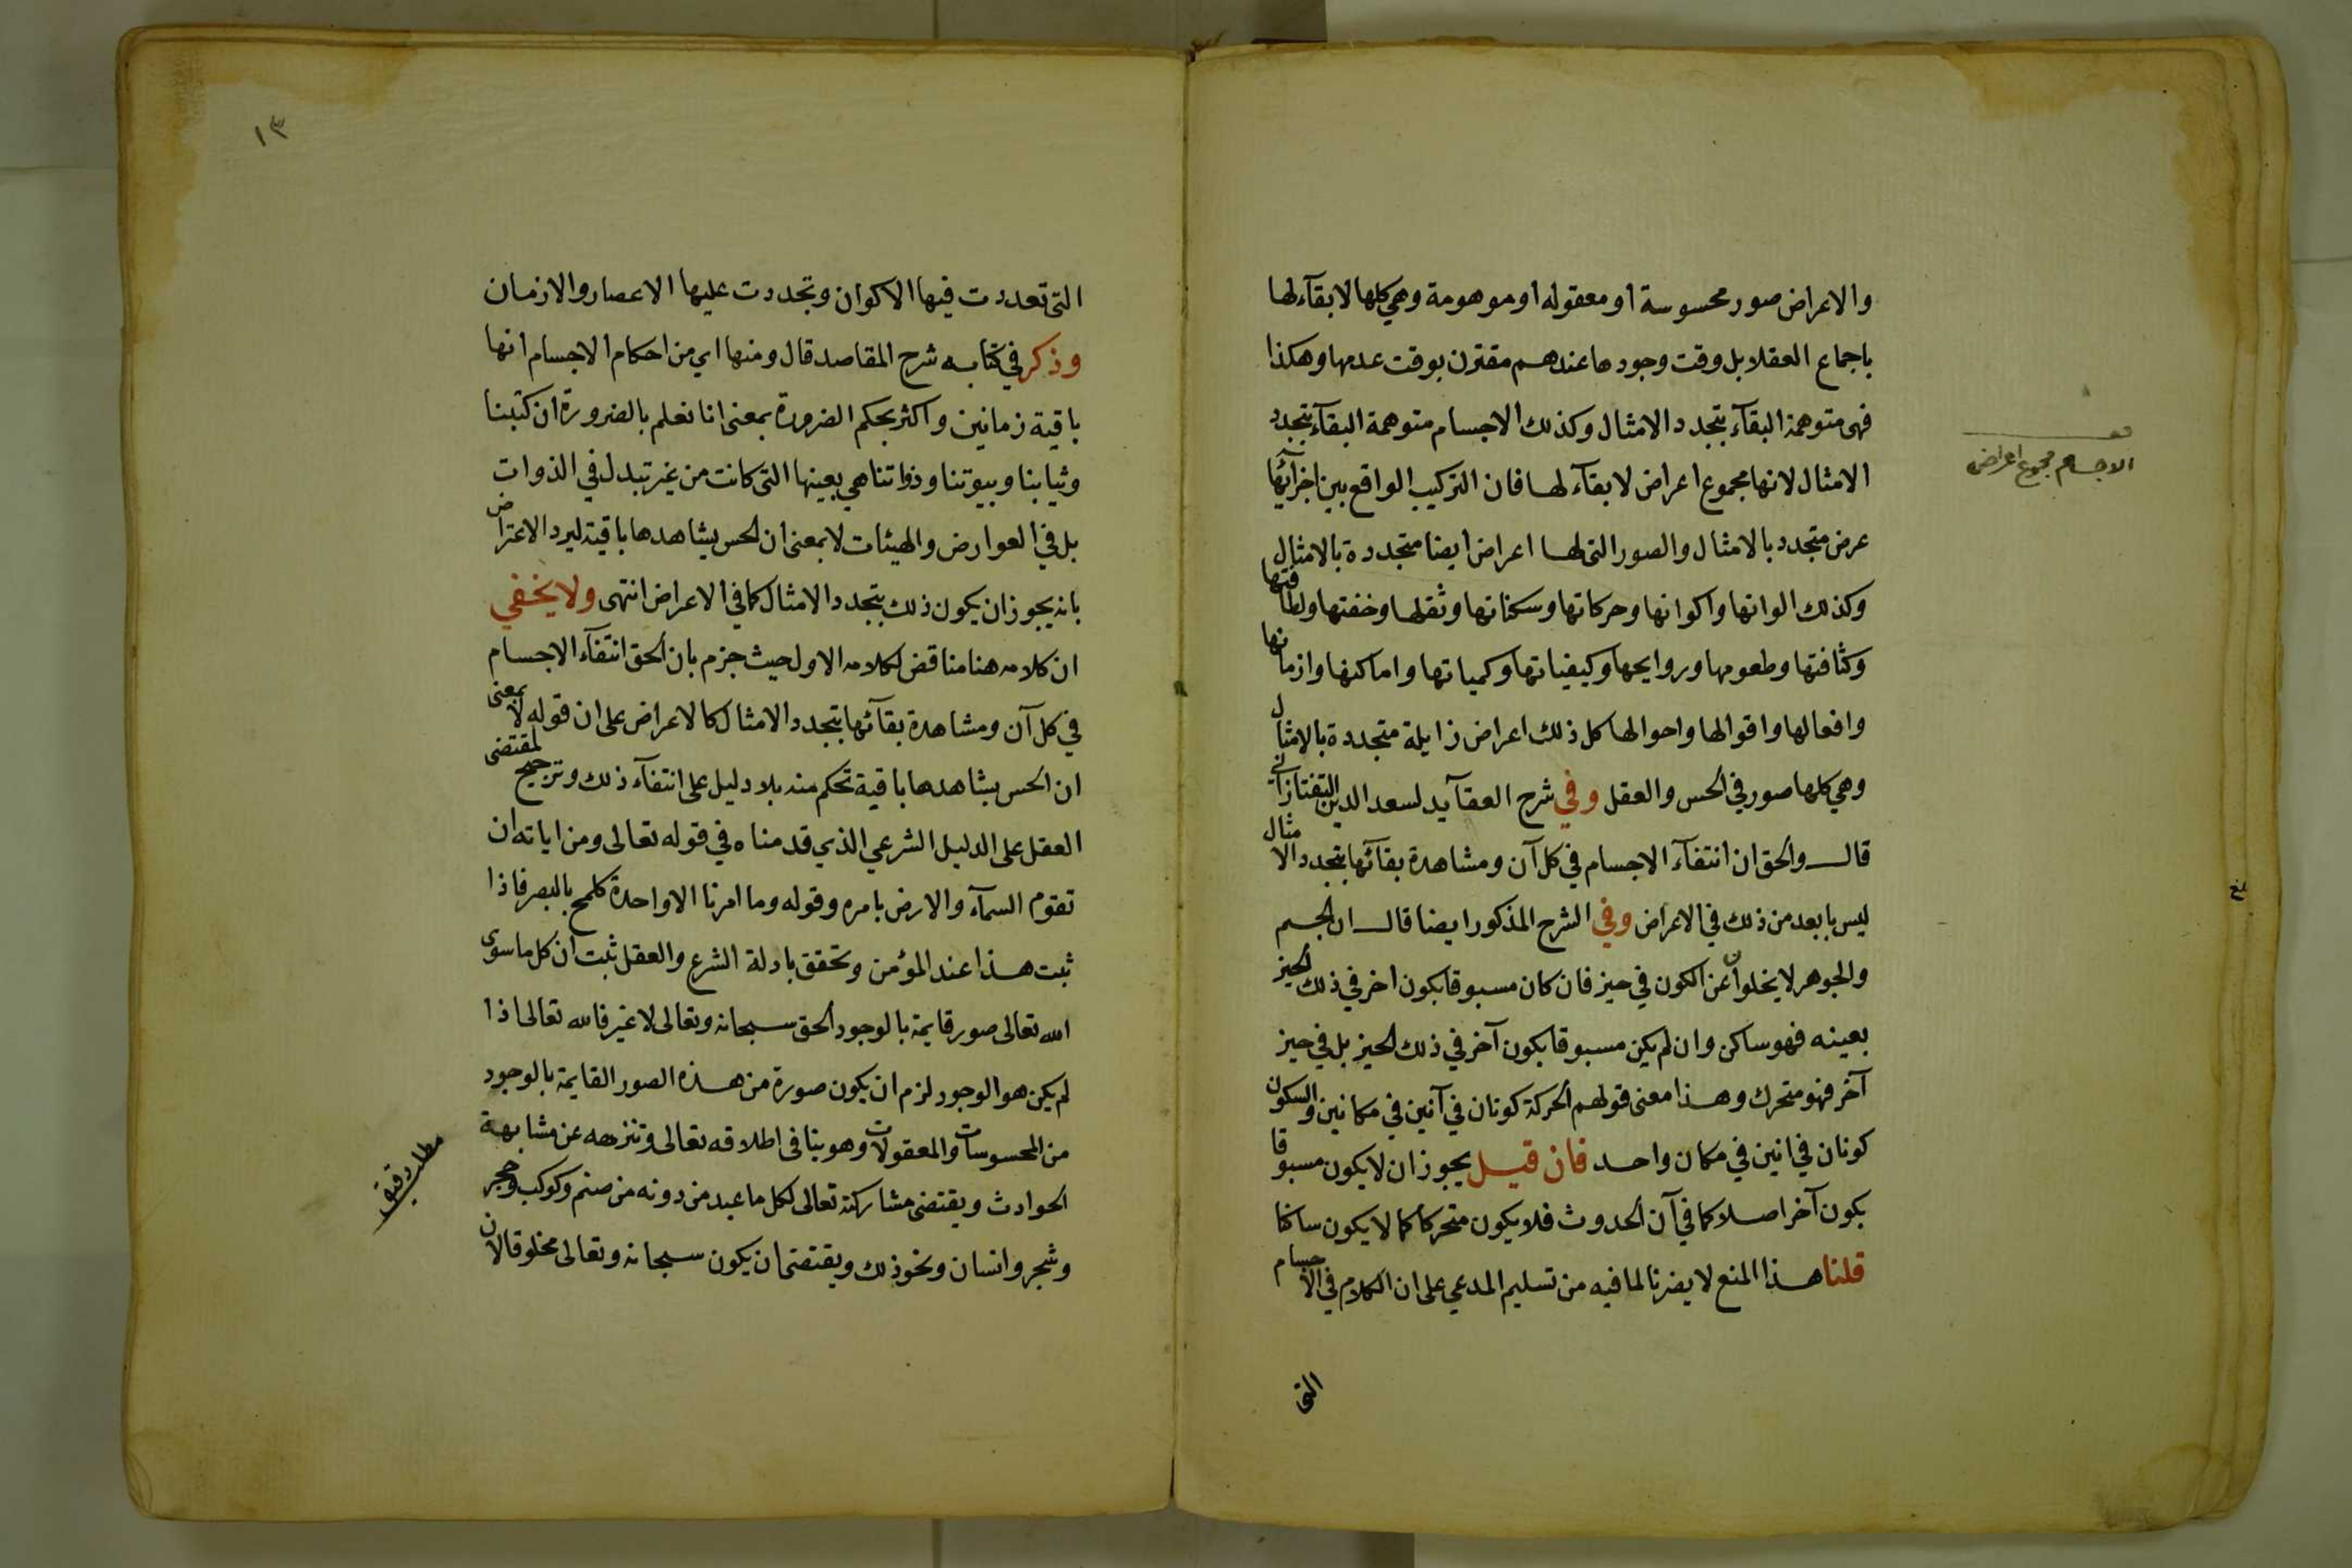 والاعراض صور محسوسة او معقوله او موهومة وهي كلها لا بقآء لها
باجماع العقلا بل وقت وجودها عندهم مقترن بوقت عدمها وهكذا
فهى متوهمة البقآء بتجدد الامثال وكذلك الاجسام متوهمة البقآء بتجدد
الامثال لانها مجموع اعراض لا بقآء لها فان التركيب الواقع بين اجزآئها
عرض متجدد بالامثال والصور التى لها اعراض ايضا متجددة بالامثال
وكذلك الوانها واكوانها وحركاتها وسكناتها وثقلها وخفتها ولطافتها
وكثافتها وطعومها وروايحها وكيفياتها وكمياتها واماكنها وازمانها
وافعالها واقوالها واحوالها كل ذلك اعراض زايلة متجددة بالامثال
وهي كلها صور في الحس والعقل وفي شرح العقآيد لسعد الدين التفتازاني
قال والحق ان انتفآء الاجسام في كل آن ومشاهدة بقآئها بتجدد الامثال
ليس بابعد من ذلك في الاعراض وفي الشرح المذكور ايضا قال ان الجسم
والجوهر لا يخلوان عن الكون في حيز فان كان مسبوقا بكون اخر في ذلك الحيز
بعينه فهو ساكن وان لم يكن مسبوقا بكون آخر في ذلك الحيز بل في حيز
آخر فهو متحرك وهذا معنى قولهم الحركة كونان في آنين في مكانين والسكون
كونان في انين في مكان واحد فان قيل يجوز ان لا يكون مسبوقا
بكون آخر اصلا كما في آن الحدوث فلا يكون متحركا كما لا يكون ساكنا
قلنا هذا المنع لا يضرنا لما فيه من تسليم المدعي على ان الكلام في الاجسام
التى
الاجسام مجموع اعراض
١٣
التى تعددت فيها الاكوان وتجددت عليها الاعصار والازمان
وذكر في كتابه شرح المقاصد قال ومنها اي من احكام الاجسام انها
باقية زمانين واكثر بحكم الضرورة بمعنى انا نعلم بالضرورة ان كتبنا
وثيابنا وبيوتنا وذواتنا هي بعينها التى كانت من غير تبدل في الذوات
بل في العوارض والهيئات لا بمعنى ان الحس يشاهدها باقية ليرد الاعتراض
بانه يجوز ان يكون ذلك بتجدد الامثال كما في الاعراض انتهى ولا يخفي
ان كلامه هنا مناقض لكلامه الاول حيث جزم بان الحق انتفآء الاجسام
في كل آن ومشاهدة بقآئها بتجدد الامثال كالاعراض على ان قوله لا بمعنى
ان الحس يشاهدها باقية تحكم منه بلا دليل على انتفآء ذلك وترجيح لمقتضى
العقل على الدليل الشرعي الذي قدمناه في قوله تعالى ومن اياته ان
تقوم السمآء والارض بامره وقوله وما امرنا الا واحدة كلمح بالبصر فاذا
ثبت هذا عند المؤمن وتحقق بادلة الشرع والعقل ثبت ان كل ما سوى
الله تعالى صور قايمة بالوجود الحق سبحانه وتعالى لا غير فالله تعالى اذا
لم يكن هو الوجود لزم ان يكون صورة من هذه الصور القايمة بالوجود
من المحسوسات والمعقولات وهو ينافى اطلاقه تعالى وتنزهه عن مشابهة
الحوادث ويقتضى مشاركته تعالى لكل ما عبد من دونه من صنم وكوكب وحجر
وشجر وانسان ونحو ذلك ويقتضى ان يكون سبحانه وتعالى مخلوقا لان
مطلب دقيق